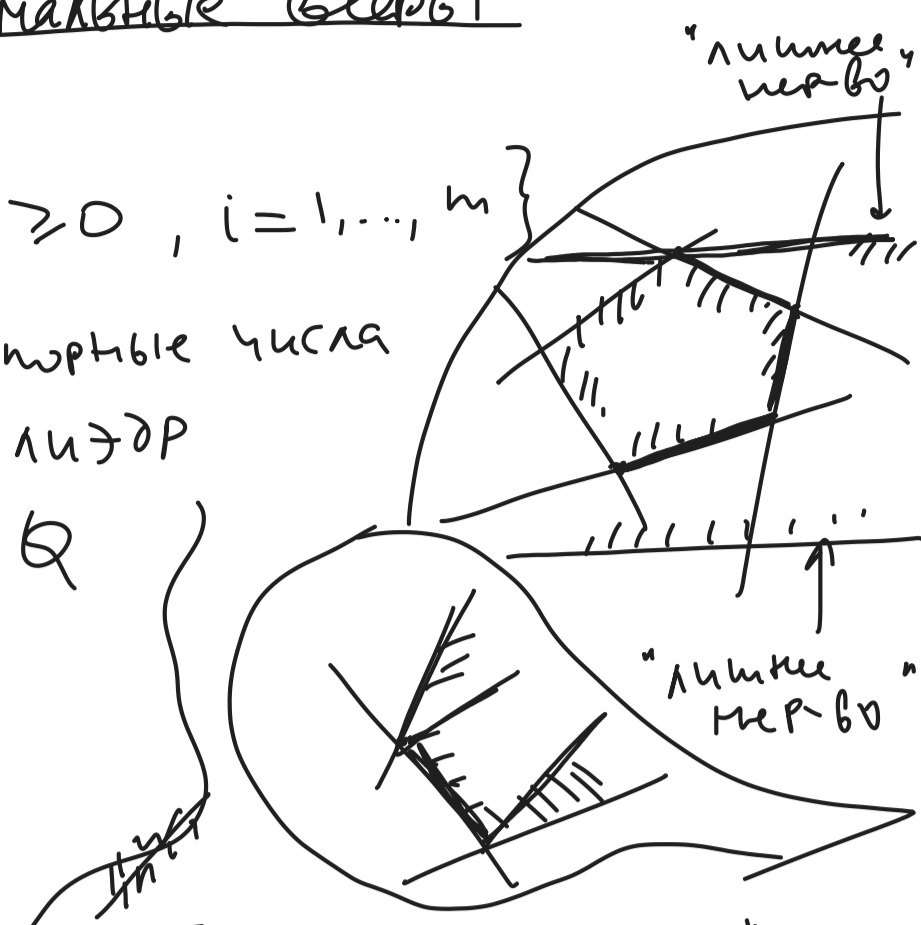 мальные веера
"лишнее
нер-во"
≥0, i=1,...,m}
порные числа
лиэдр
Q
"лишнее
нер-во"